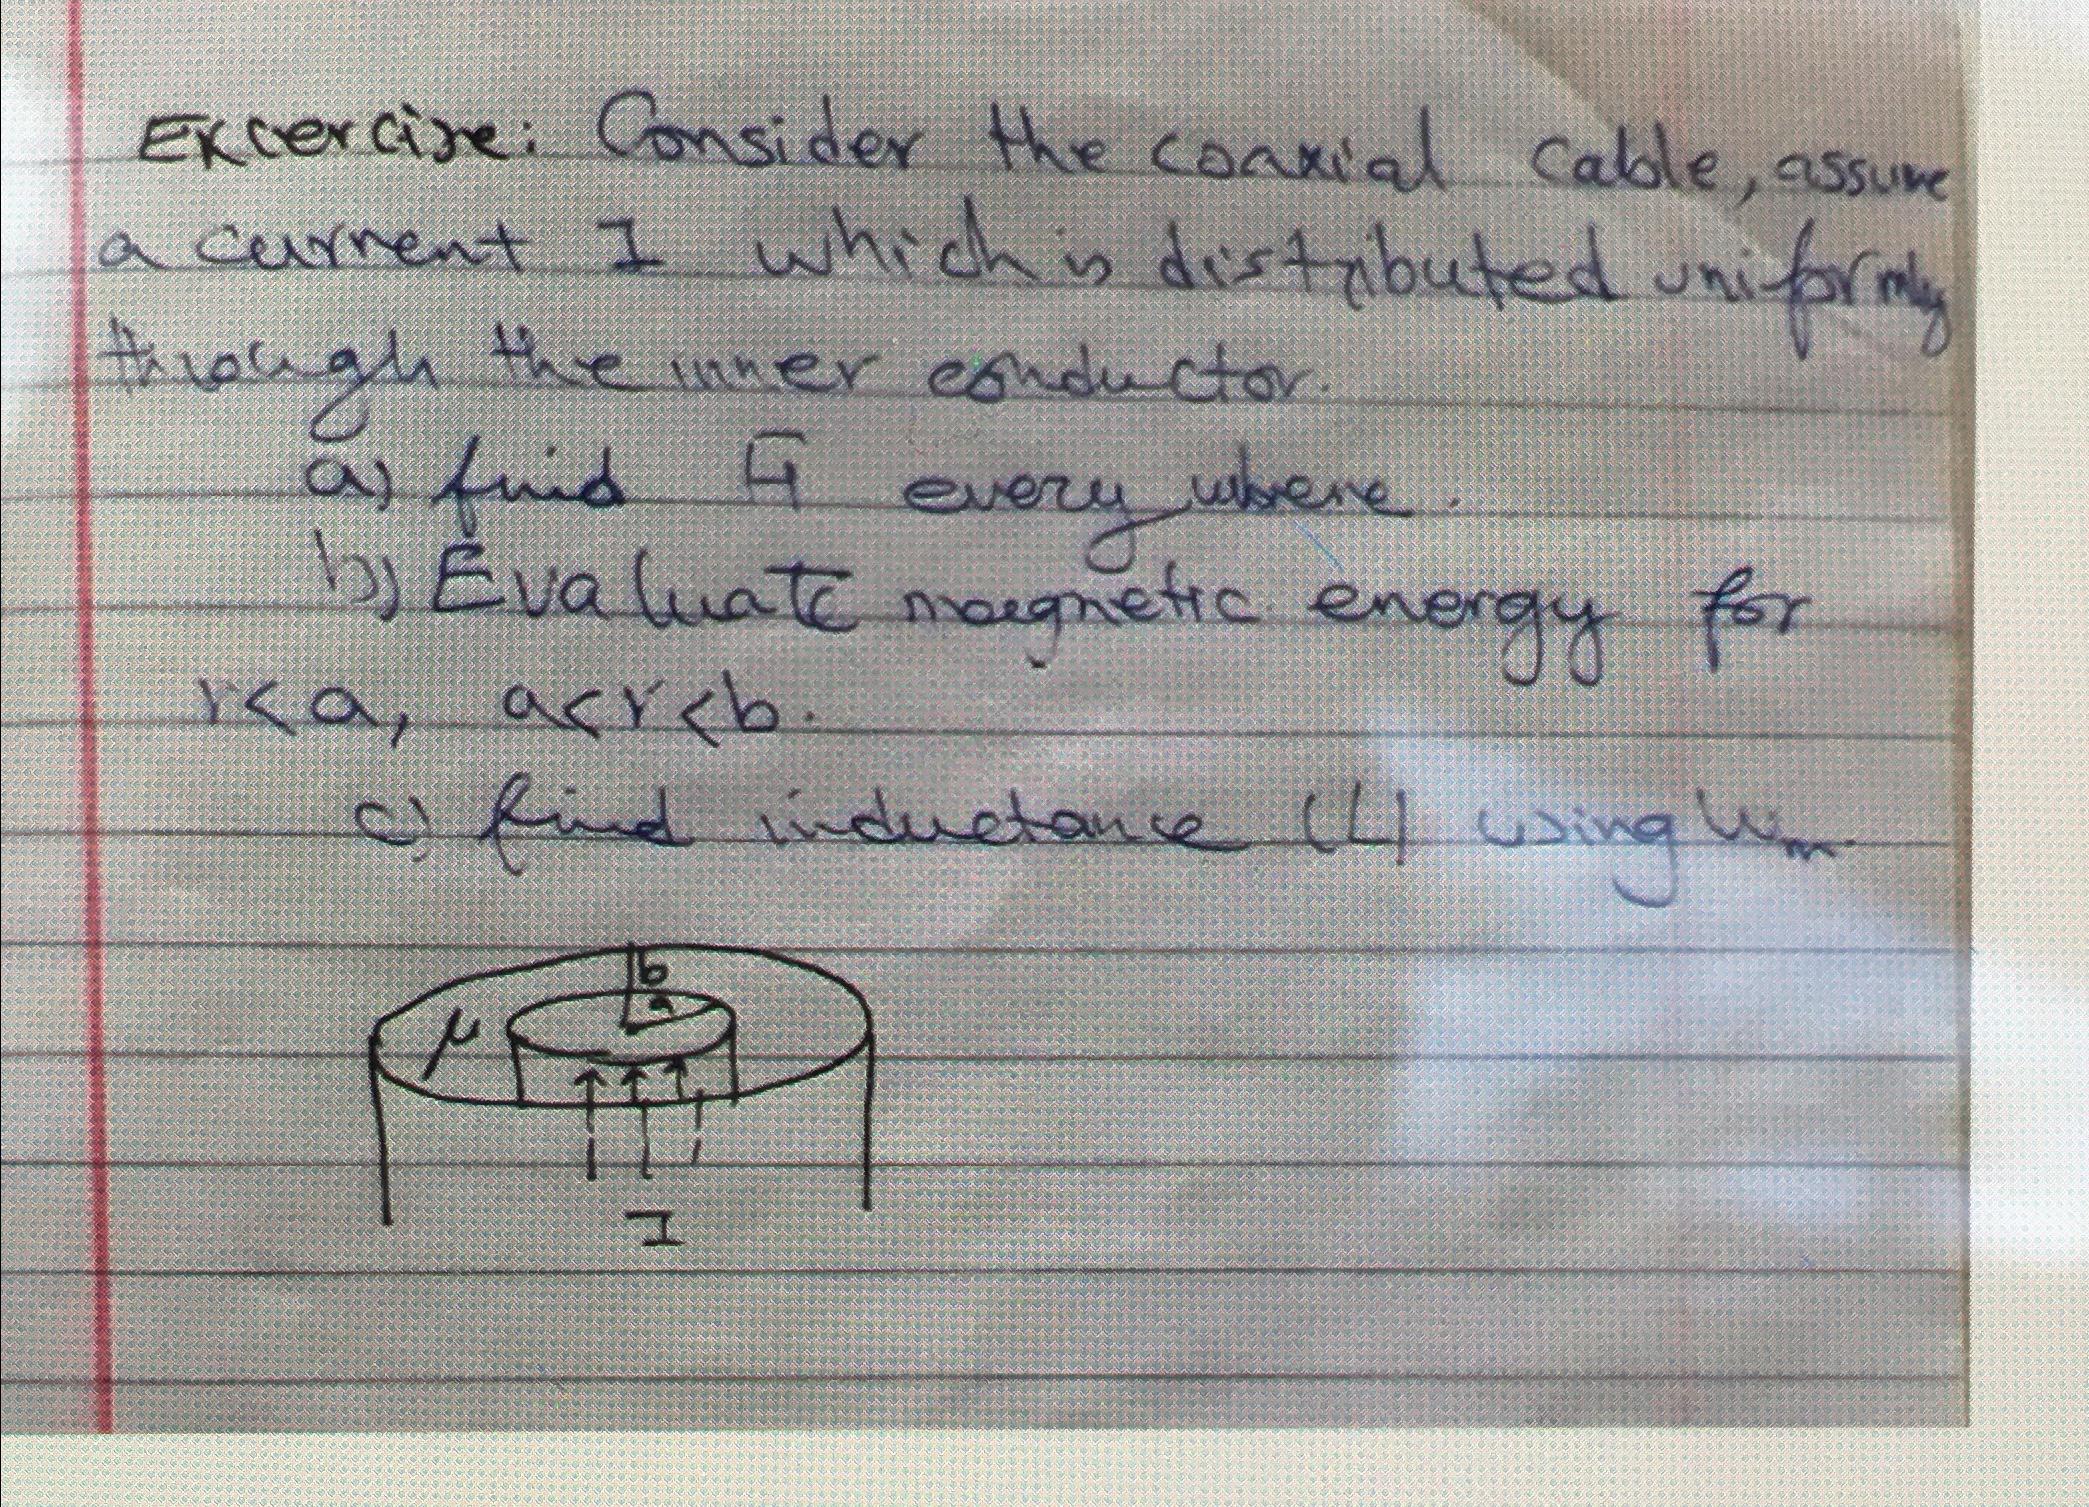 Excercise: Consider the coaxial cable, assume
a current I which is distributed uniformly
through the inner conductor.
a) find every where.
b) Evaluate magnetic energy for
r<a, a<r<b.
c) find inductance (L) using Wm.
b
a
μ
I